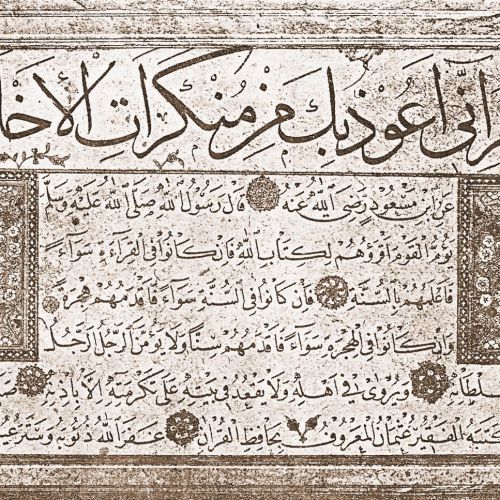 إني أعوذ بك من منكرات الأخ
عن ابن مسعود رضي الله عنه قال رسول الله صلى الله عليه وسلم
يؤم القوم اقرؤهم لكتاب الله فان كانوا في القراءة سواء
فاعلمهم بالسنة فان كانوا في السنة سواء فاقدمهم هجرة
وان كانوا في الهجرة سواء فاقدمهم سنا ولا يؤمن الرجل الرجل
سلطانه ويروى في اهله ولا يقعد في بيته على تكرمته الا باذنه
الفقير عثمان المعروف بحافظ القرآن غفر الله ذنوبه وستر